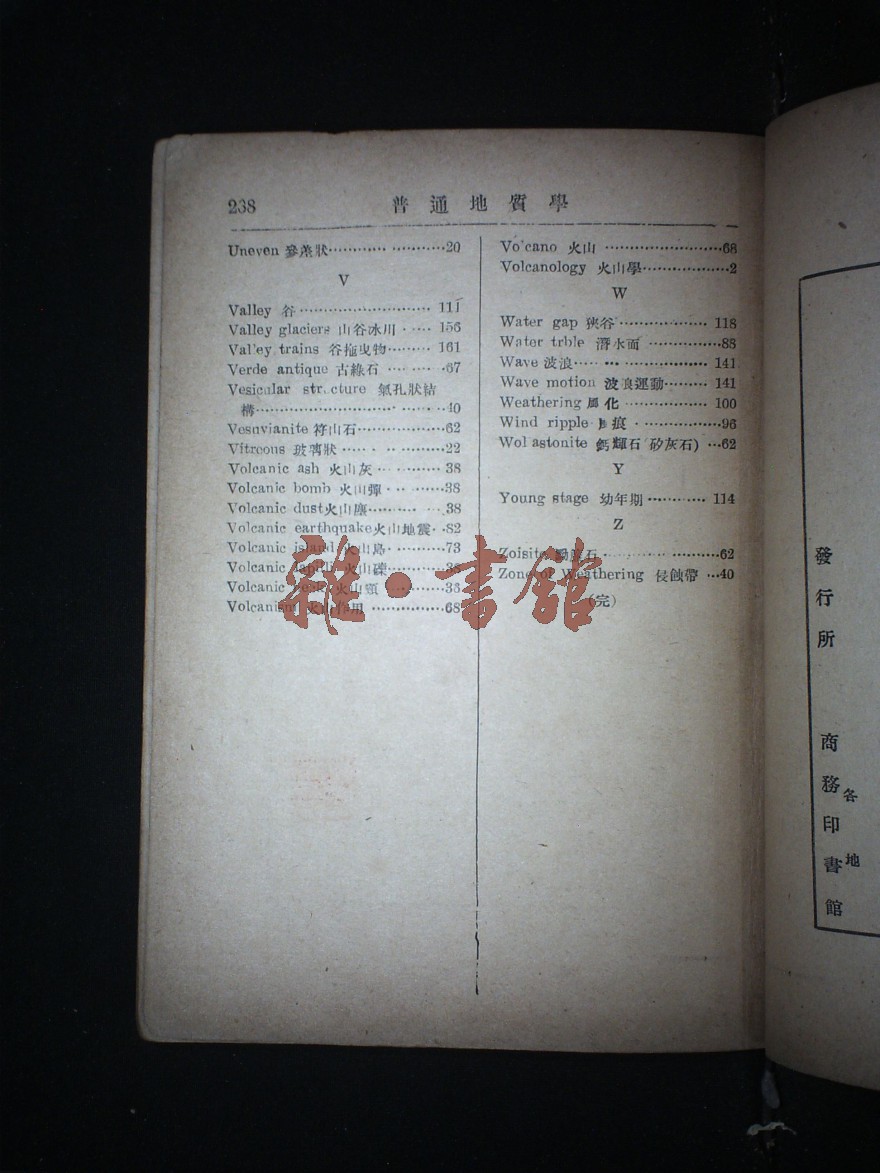 238
普通地質學
Uneven 參差狀 20
V
Valley 谷 111
Valley glaciers 山谷冰川 156
Val'ey trains 谷拖曳物 161
Verde antique 古綠石 67
Vesicular structure 氣孔狀結
構 40
Vesuvianite 符山石 62
Vitreous 玻璃狀 22
Volcanic ash 火山灰 38
Volcanic bomb 火山彈 38
Volcanic dust火山塵 38
Volcanic earthquake火山地震 82
Volcanic island 火山島 73
Volcanic 火山礫
Volcanic 火山頸
Volcanism 火山作用 68
Vo'cano 火山 68
Volcanology 火山學 2
W
Water gap 狹谷 118
Water trble 潛水面 88
Wave 波浪 141
Wave motion 波浪運動 141
Weathering 風化 100
Wind ripple 痕 96
Wol astonite 鈣輝石 矽灰石) 62
Y
Young stage 幼年期 114
Z
Zoisite 石 62
Zone of Weathering 侵蝕帶 40
(完)
雜·書館
發行所
商務印書館
各地